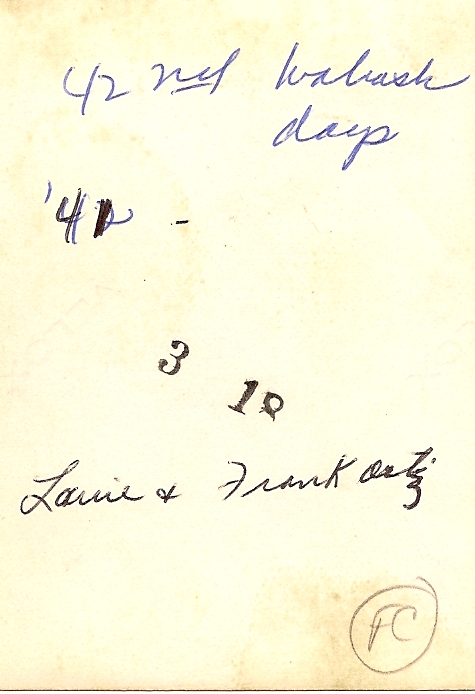 42nd Wabash
days
'41 -
3
10
Louie & Frank Ortiz
FC